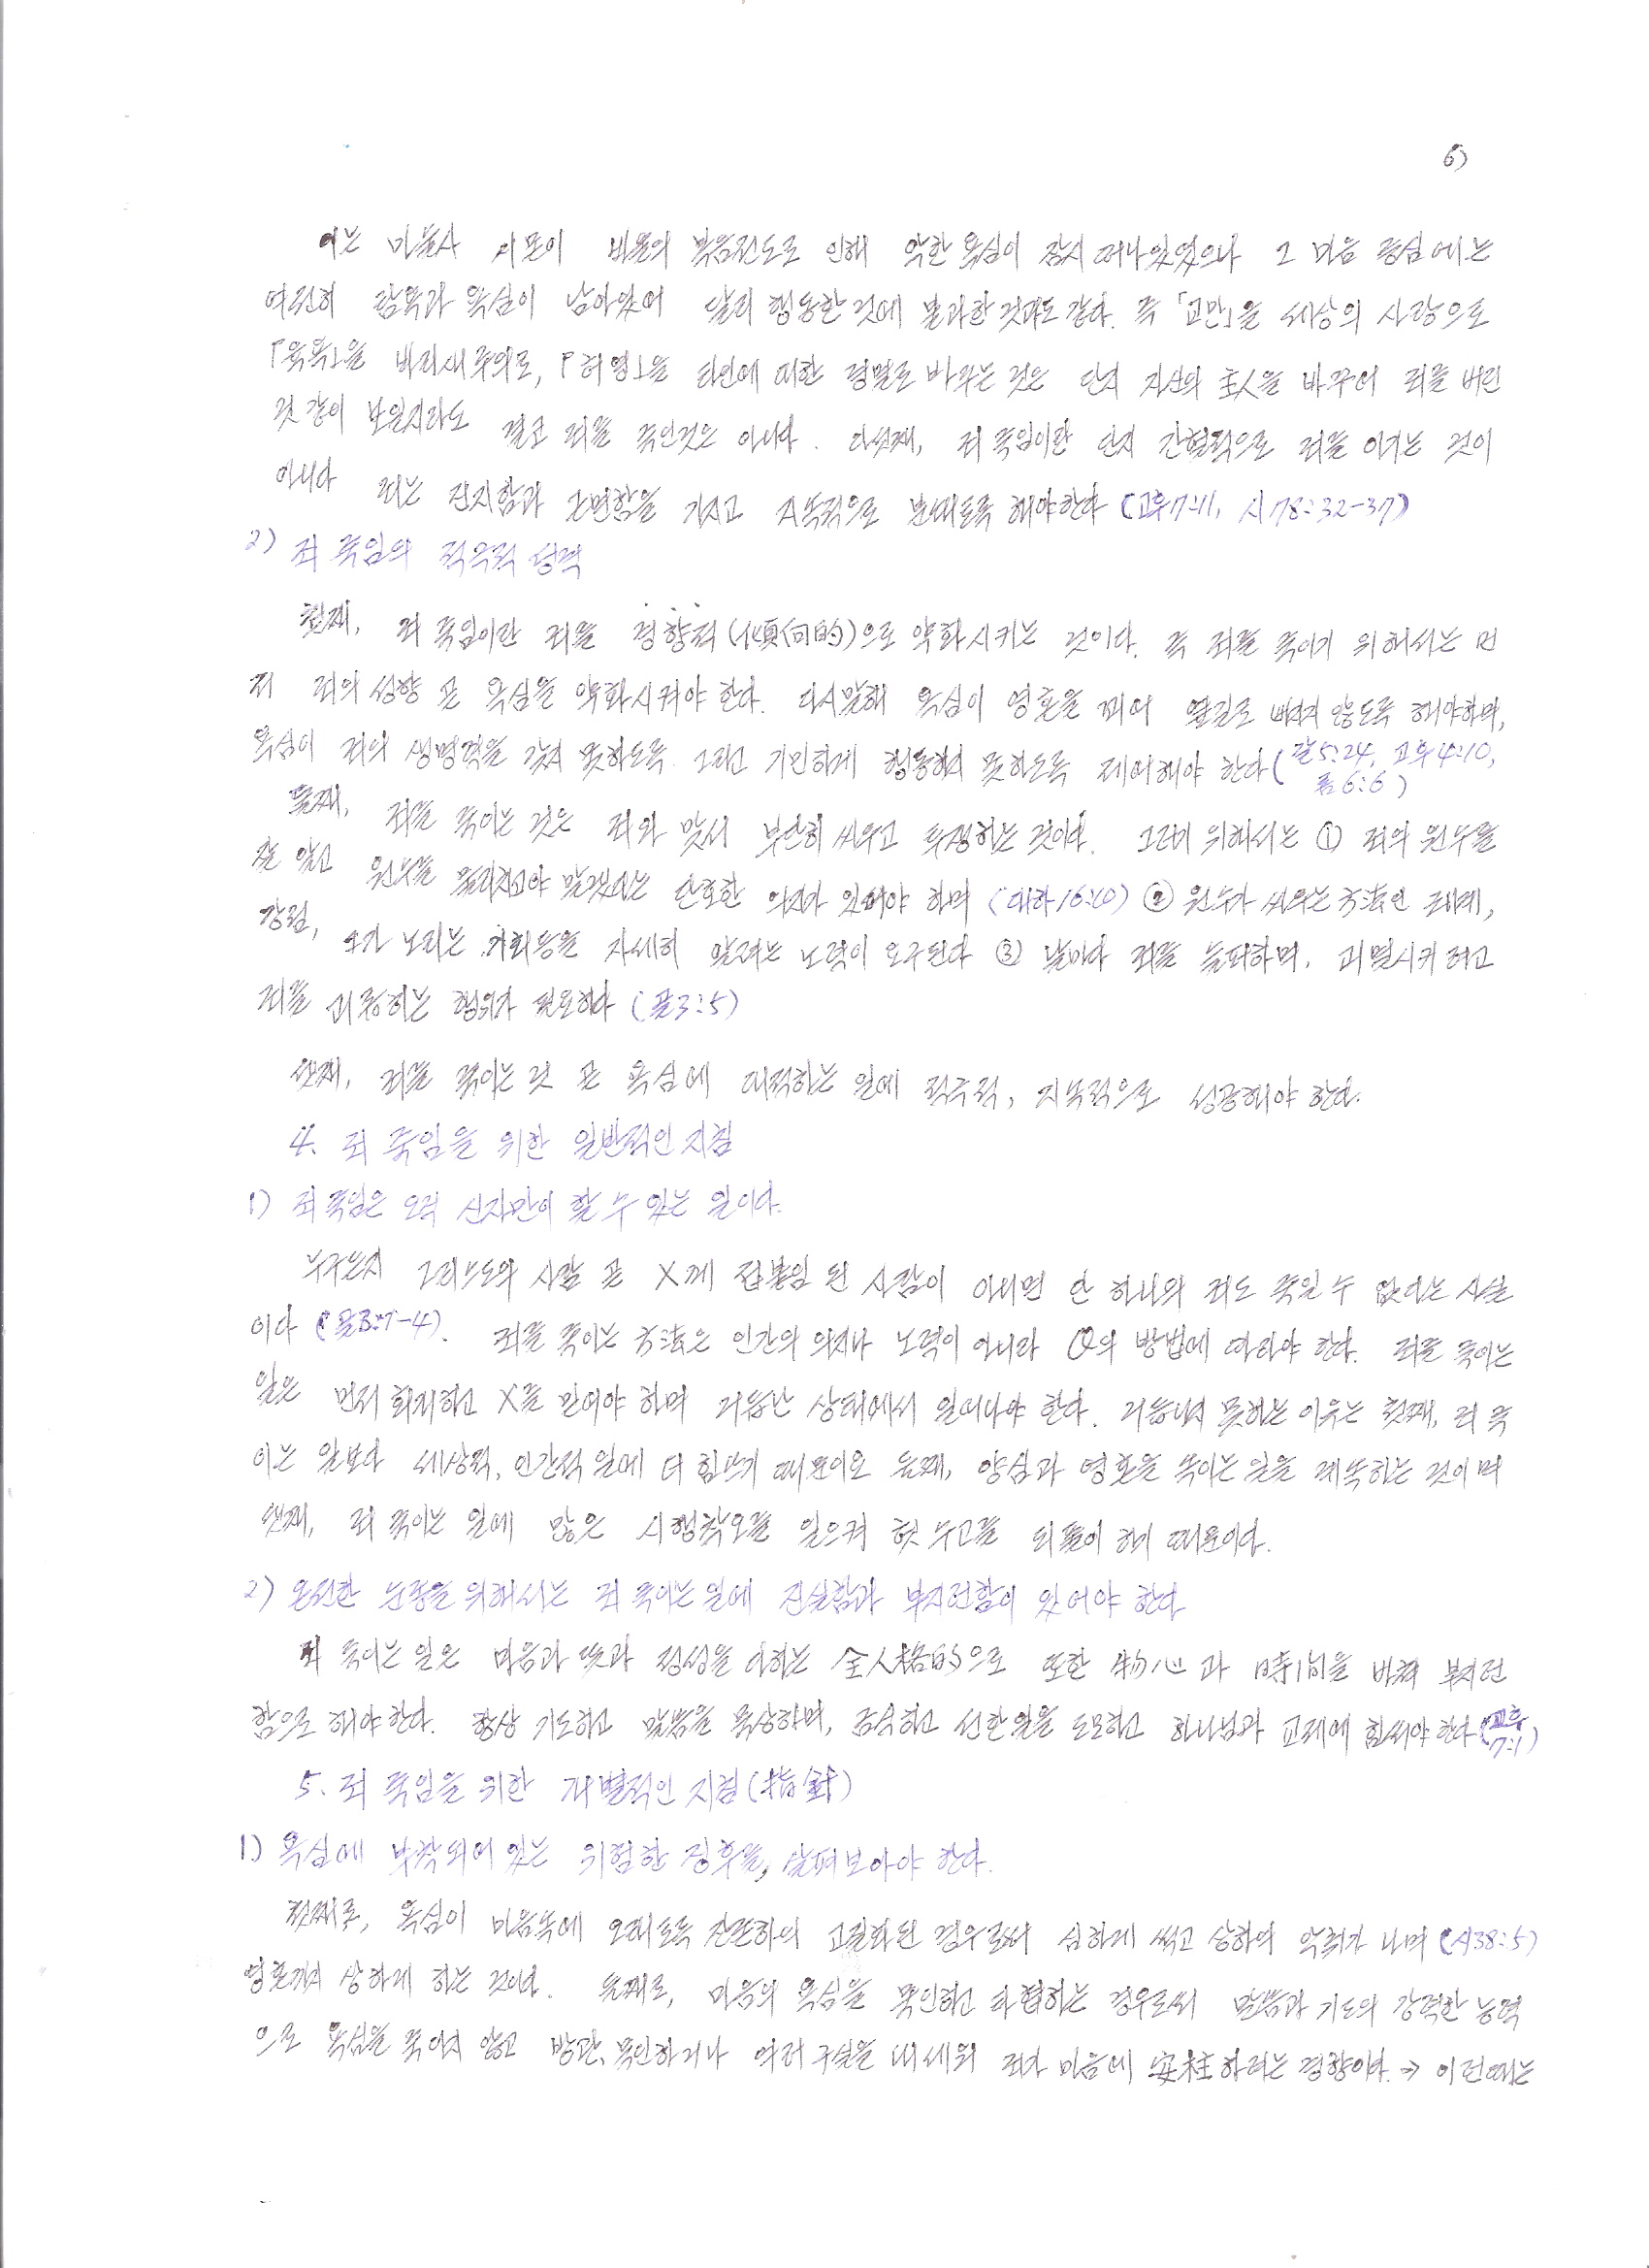 6)
이는 마술사 시몬이 빌립의 복음전도로 인해 악한 욕심이 잠시 떠나 있었으나 그 마음 중심에는
여전히 탐욕과 욕심이 남아있어 달리 행동한 것에 불과한 것과도 같다. 즉 「교만」을 세상의 사랑으로
「육욕」을 바리새주의로, 「허영」을 타인에 대한 경멸로 바꾸는 것은 단지 자신의 主人을 바꾸어 죄를 버린
것 같이 보일지라도 결코 죄를 죽인것은 아니다. 다섯째, 죄 죽임이란 단지 간헐적으로 죄를 이기는 것이
아니다 죄는 진지함과 근면함을 가지고 지속적으로 해야한다 (고후7:11, 시78:32-37)
2) 죄 죽임의 적극적 성격
첫째, 죄 죽임이란 죄를 경향적(傾向的)으로 약화시키는 것이다. 즉 죄를 죽이기 위해서는 먼
저 죄의 성향 곧 욕심을 약화시켜야 한다. 다시말해 욕심이 영혼을 꾀어 옆길로 빠지지 않도록 해야하며,
욕심이 죄의 생명력을 갖지 못하도록 그리고 기민하게 행동하지 못하도록 제어해야 한다 (갈5:24, 고후4:10,
롬6:6)
둘째, 죄를 죽이는 것은 죄와 맞서 부단히 싸우고 투쟁하는 것이다. 그러기 위해서는 ① 죄의 원수를
잘 알고 원수를 물리치고야 말겠다는 단호한 의지가 있어야 하며 (대하16:10) ② 원수가 싸우는 方法인 궤계,
강점, 그가 노리는 기회등을 자세히 알려는 노력이 요구된다 ③ 날마다 죄를 돌파하며, 괴멸시키려고
죄를 하는 행위가 필요하다 (골3:5)
셋째, 죄를 죽이는 것 곧 욕심에 대적하는 일에 적극적, 지속적으로 성공해야 한다.
4. 죄 죽임을 위한 일반적인 지침
1) 죄 죽임은 오직 신자만이 할 수 있는 일이다.
누구든지 그리스도의 사람 곧 X께 접붙임 된 사람이 아니면 단 하나의 죄도 죽일 수 없다는 사실
이다 (골3:1-4). 죄를 죽이는 方法은 인간의 의지나 노력이 아니라 의 방법에 따라야 한다. 죄를 죽이는
일은 먼저 회개하고 X를 믿어야 하며 거듭난 상태에서 일어나야 한다. 거듭나지 못하는 이유는 첫째, 죄 죽
이는 일보다 세상적, 인간적 일에 더 힘쓰기 때문이오 둘째, 양심과 영혼을 속이는 일을 계속하는 것이며
셋째, 죄 죽이는 일에 많은 시행착오를 일으켜 헛수고를 되풀이 하기 때문이다.
2) 온전한 순종을 위해서는 죄 죽이는 일에 진실함과 부지런함이 있어야 한다
죄 죽이는 일은 마음과 뜻과 정성을 다하는 全人格的으로 또한 物心과 時間을 바쳐 부지런
함으로 해야 한다. 항상 기도하고 말씀을 묵상하며, 금식하고 선한 일을 도모하고 하나님과 교제에 힘써야 한다 (고후
7:1)
5. 죄 죽임을 위한 개별적인 지침(指針)
1) 욕심에 부착되어 있는 위험한 징후를 살펴보아야 한다.
첫째로, 욕심이 마음속에 오래도록 잔존하여 고질화된 경우로써 심하게 썩고 상하여 악취가 나며 (시38:5)
영혼까지 상하게 하는 것이다. 둘째로, 마음의 욕심을 묵인하고 타협하는 경우로써 말씀과 기도의 강력한 능력
으로 욕심을 죽이지 않고 방관, 묵인하거나 여러 구실을 내세워 죄가 마음에 安住하려는 경향이다. → 이런때는